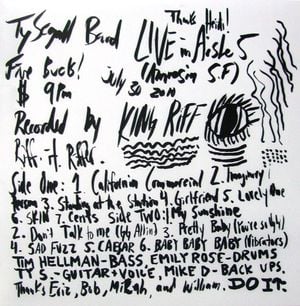 Ty Segall Band
LIVE in Aisle 5
Thanks Heidi!
Five Buck!
(Amnesia S.F)
$ 9pm
July 30 2010
Recorded by KING RIFF
Riff. H.
Side One: 1 California Commercial 2. Imaginary
Person 3. Standing at the Station 4. Girlfriend 5. Lovely One
6. SKIN 7. Cents Side TWO: 1 My Sunshine
2. Don't Talk to me (GG Allin) 3. Pretty Baby (You're so ugly)
4. SAD FUZZ 5. CAESAR 6. BABY BABY BABY (Vibrators)
TIM HELLMAN-BASS, EMILY ROSE-DRUMS
TY S.-GUITAR+VOICE, MIKE D-BACK UPS.
Thanks Eric, Bob, Mikah, and William. DO IT.